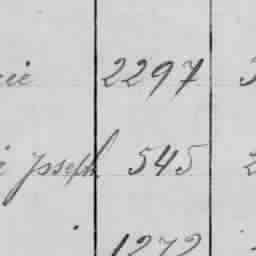 2297
Joseph 545
1272